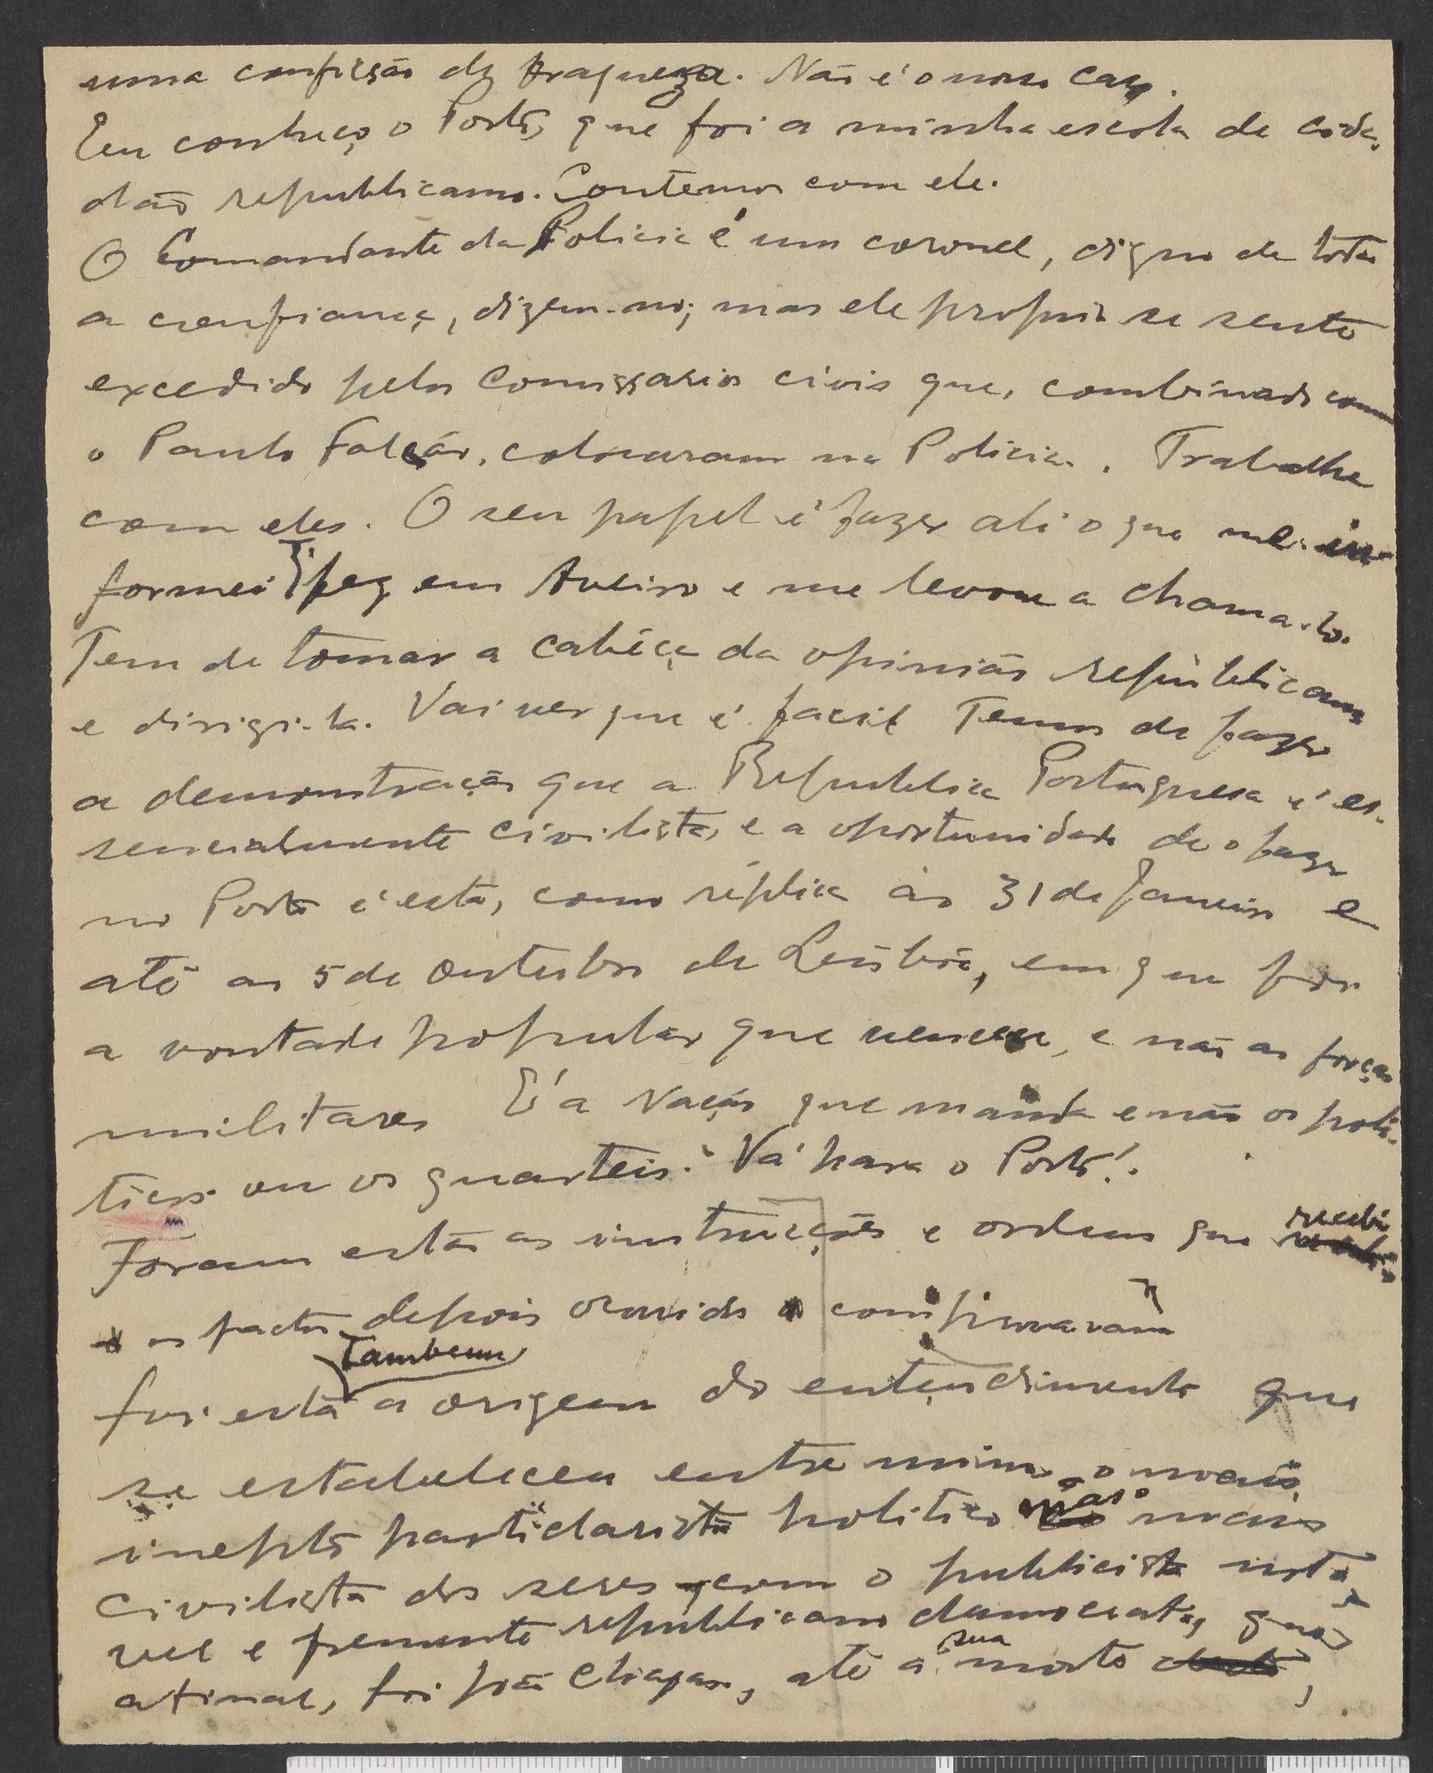 uma confissão de fraqueza. Não é o nosso caso.
Eu conheço o Porto, que foi a minha escola de cida-
dão republicano. Contemos com ele.
O Comandante da Policia é um coronel, digno de toda
a confiança, dizem-no; mas ele proprio se sente
excedido pelos Comissarios civis que, combinado com
o Paulo Falcão, colocaram na Policia. Trabalhe
com eles. O seu papel é fazer ali o que me in-
formei fez em Aveiro e me levou a chama-lo.
Tem de tomar a cabéça da opinião republicana
e dirigi-la. Vai ver que é facil Temos de fazer
a demonstração que a Republica Portuguesa é es-
sencialmente civilista, e a oportunidade de o fazer
no Porto é esta, como réplica ao 31 de Janeiro e
até ao 5 de Outubro de Lisbôa, em que foi
a vontade popular que venceu, e não as forças
militares É a Nação que manda e não os poli-
ticos ou os quarteis. Vá para o Porto!.
Foram estas as instrucções e ordens que recebi
os factos depois ocorridos confirmaram
foi esta tambem a origem do entendimento que
se estabeleceu entre mim, o mais
inepto partidarista politico mas o mais
civilista dos seres com o publicista notá-
vel e fremente republicano democrata, que
afinal, foi João Chagas, até á sua morte,